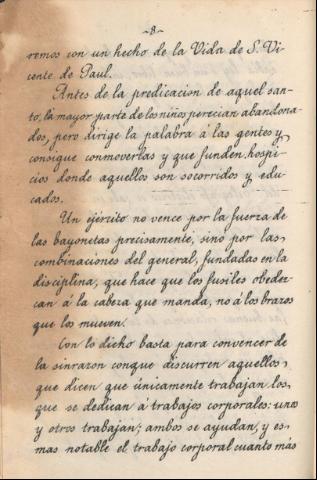 -8-
remos con un hecho de la Vida de S. Vi-
cente de Paul.
Antes de la predicación de aquel san-
to, la mayor parte de los niños perecian abandona-
dos, pero dirige la palabra á las gentes y
consigue conmoverlas y que funden hospi-
cios donde aquellos son socorridos y edu-
cados.
Un ejército no vence por la fuerza de
las bayonetas precisamente, sino por las
combinaciones del general, fundadas en la
disciplina, que hace que los fusiles obedez-
can á la cabeza que manda, no á los brazos
que los mueven.
Con lo dicho basta para convencer de
la sinrazon conque discurren aquellos
que dicen que únicamente trabajan los
que se dedican á trabajos corporales: unos
y otros trabajan; ambos se ayudan, y es
mas notable el trabajo corporal cuanto más